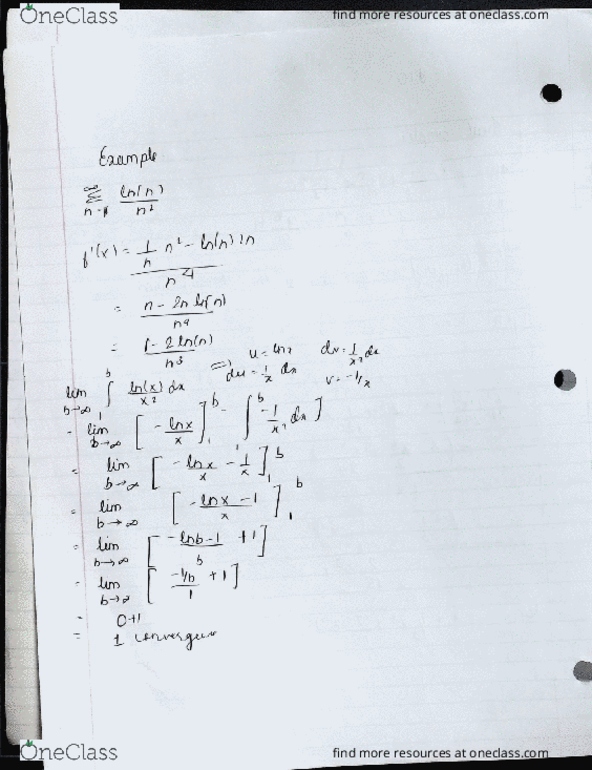 OneClass
find more resources at oneclass.com
Example
∞ Σ n=1 ln(n)/n²
f'(x) = (1/n n² - ln(n) 2n)/n⁴
= (n - 2n ln(n))/n⁴
= (1 - 2 ln(n))/n³
⇒ u = lnx dv = 1/x² dx
du = 1/x dx v = -1/x
lim b→∞ ∫₁ᵇ ln(x)/x² dx
= lim b→∞ [ -lnx/x ]₁ᵇ - ∫₁ᵇ -1/x² dx ]
= lim b→∞ [ -lnx/x - 1/x ]₁ᵇ
= lim b→∞ [ (-lnx - 1)/x ]₁ᵇ
= lim b→∞ [ (-lnb - 1)/b + 1 ]
= lim b→∞ [ (-1/b)/1 + 1 ]
= 0+1
= 1
OneClass
find more resources at oneclass.com